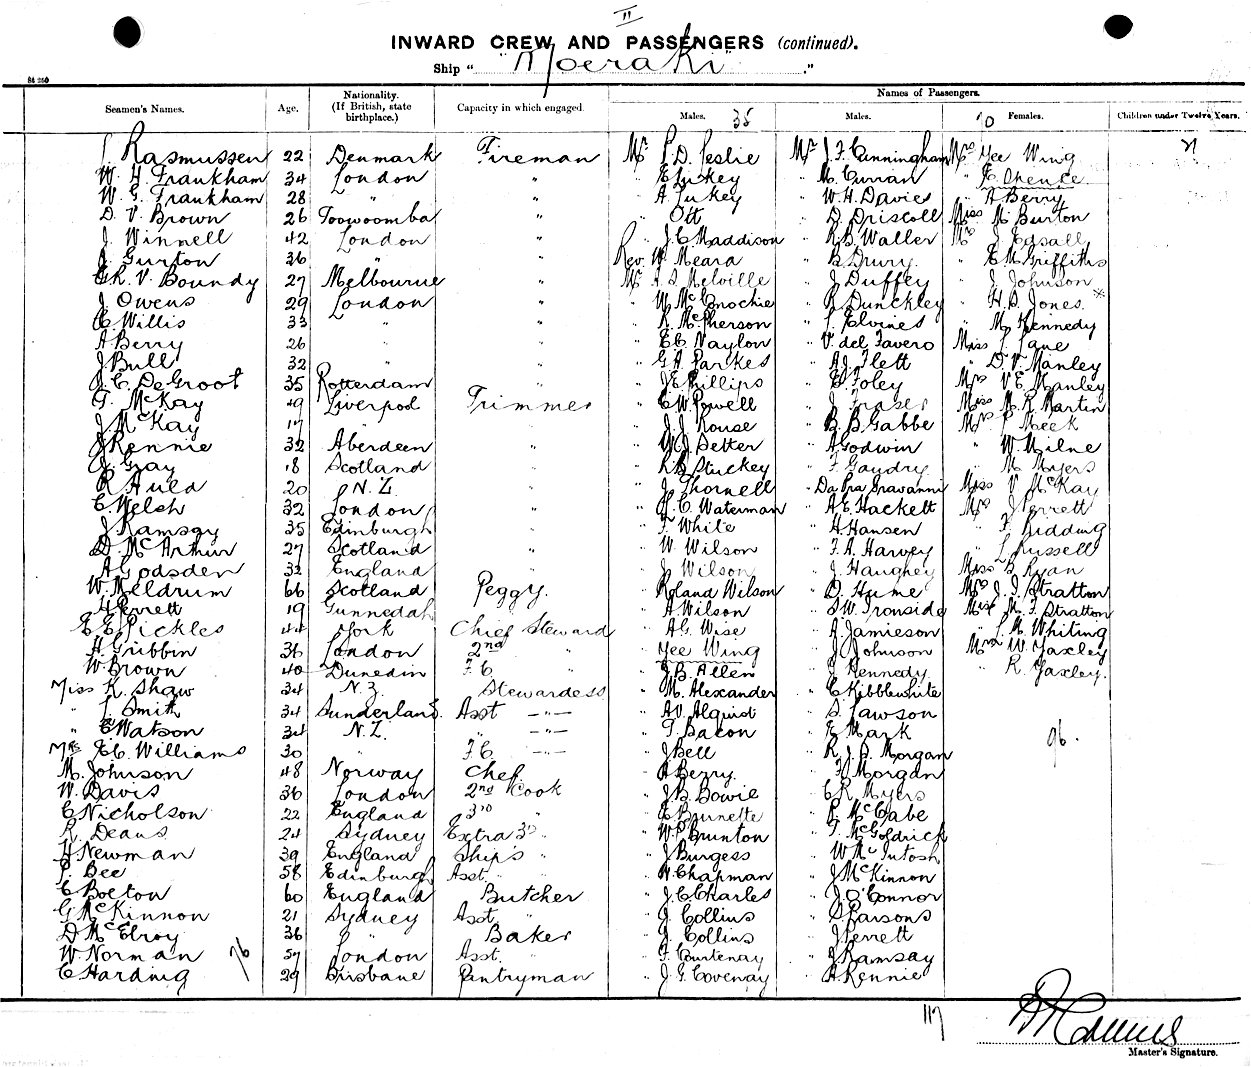 II
INWARD CREW AND PASSENGERS (continued).
Ship "Moeraki"
84 250
Seamen's Names. Age. Nationality. (If British, state birthplace.) Capacity in which engaged. Names of Passengers.
Males. 35 Males. 10 Females. Children under Twelve Years.
Rasmussen 22 Denmark Fireman Mr P. D. Leslie Mr J. F. Cunningham Mrs Yee Wing
W. H. Frankham 34 London " " E Lukey " M. Curran " E. Chence
W. G. Frankham 28 " " " A. Lukey " W. H. Davies " A Berry
D. V. Brown 26 Toowoomba " " Ott " D. Driscoll Miss M Burton
J. Winnell 42 London " " J. C Maddison " R. B. Waller Mrs J. Edsall
J. Gurton 36 " " Rev. W. Meara " B Drury " E. M. Griffiths
G. R. V. Boundy 27 Melbourne " Mr A. S Melville " J Duffey " J Johnson
J Owens 29 London " " W McConochie " R Dunckley " H. S. Jones
C Willis 33 " " " R. McPherson " J. Elvines " M. Kennedy
A Berry 26 " " " E C Naylon " V. del Favero Miss L. Lane
J Bull 32 " " " G. A. Parkes " A. J. Flett " D. V. Manley
J. C. DeGroot 35 Rotterdam " " J E Phillips " E Foley Mrs V E. Manley
G. McKay 19 Liverpool Trimmer " C W. Powell " J Fraser Miss M. R. Martin
J. McKay 17 " " " J. J. Rouse " B. B. Gabbe Mrs P Meek
J Rennie 32 Aberdeen " " W. J. Setter " A Godwin " W. Milne
J. Gray 18 Scotland " " R B Stuckey " F. Gaudry " M Myers
R Auld 20 N. Z. " " J. Thornell " Da Pra Gravanni Miss V. McKay
C Welsh 32 London " " H. C. Waterman " A. E. Hackett Mrs J Perrett
J Ramsay 35 Edinburgh " " F White " H. Hansen " F. Kidding
D. McArthur 27 Scotland " " W. Wilson " F. A. Harvey " L Russell
A Godsden 32 England " " J. Wilson " J. Haughey Miss B. Ryan
W. Meldrum 66 Scotland Peggy. " Roland Wilson " D. Hume Mrs J. J. Stratton
H Perrett 19 Gunnedah " A Wilson " S. W. Ironside Miss M. F. Stratton
E E Pickles 44 York Chief Steward " A. G. Wise " A. Jamieson " L. M. Whiting
A Gribbin 36 London 2nd " " Yee Wing " J Johnson Mrs W. Yaxley
W Brown 40 Dunedin F. C " " J. B. Allen " J Kennedy " R. Yaxley.
Miss K. Shaw 34 N. Z. Stewardess " M. Alexander " C Kibblewhite
" L. Smith 34 Sunderland. Asst —"— " A. V. Alquist " S. Lawson
" E Watson 34 N. Z. " —"— " T. Bacon " E Mark 96.
Mrs E C. Williams 30 " F. C. —"— " J Bell " R. J. B. Morgan
M. Johnson 48 Norway Chef. " A Berry. " F. Morgan
W. Davis 36 London 2nd Cook " J. B. Bowie " C. R. Myers
C Nicholson 22 England 3rd " " E Brunette " P. McCabe
R. Deans 24 Sydney Extra 3rd " " W. P. Brunton " T. McGoldrick
H Newman 39 England Ship's " " J Burgess " W McIntosh
P. Bee 58 Edinburgh Asst. " " W. Chapman " J McKinnon
C Bolton 60 England Butcher " J. C Charles " J. O'Connor
G McKinnon 21 Sydney Asst. " " J. Collins " S Parsons
D. McElroy 36 " Baker " J. Collins " J Perrett
W. Norman 57 London Asst. " " F. Courtenay " J Ramsay
C Harding 76 29 Brisbane Pantryman " J. G. Covenay " A Rennie
117
Master's Signature.